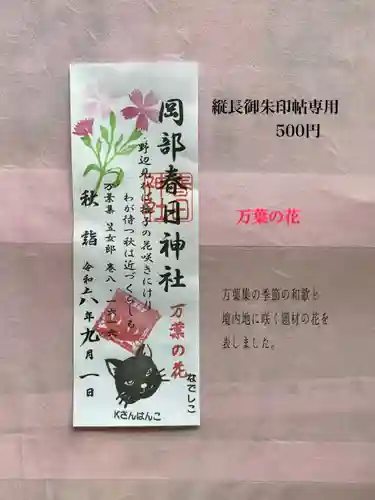 縦長御朱印帖専用
500円
万葉の花
万葉集の季節の和歌と
境内地に咲く題材の花を
表しました。
岡部春日神社
野辺見れば撫子の花咲きにけり
わが待つ秋は近づくらしも
万葉集 笠女郎 巻八・一六一六
秋詣
令和六年九月一日
万葉の花
なでしこ
Kさんはんこ